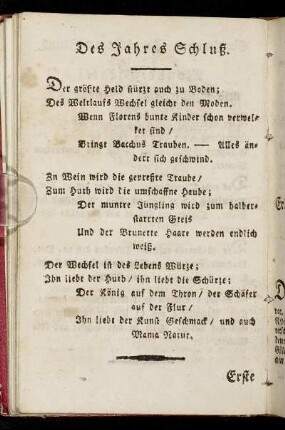 Des Jahres Schluß.
Der größte Held stürzt auch zu Boden;
Des Weltlaufs Wechsel gleicht den Moden.
Wenn Florens bunte Kinder schon verwel-
ket sind /
Bringt Bacchus Trauben. — Alles än-
dert sich geschwind.
Zu Wein wird die gepreßte Traube /
Zum Huth wird die umschaffne Haube;
Der muntre Jüngling wird zum halber-
starrten Greis
Und der Brunette Haare werden endlich
weiß.
Der Wechsel ist des Lebens Würze;
Ihn liebt der Huth / ihn liebt die Schürze;
Der König auf dem Thron / der Schäfer
auf der Flur /
Ihn liebt der Kunst Geschmack / und auch
Mama Natur.
Erste